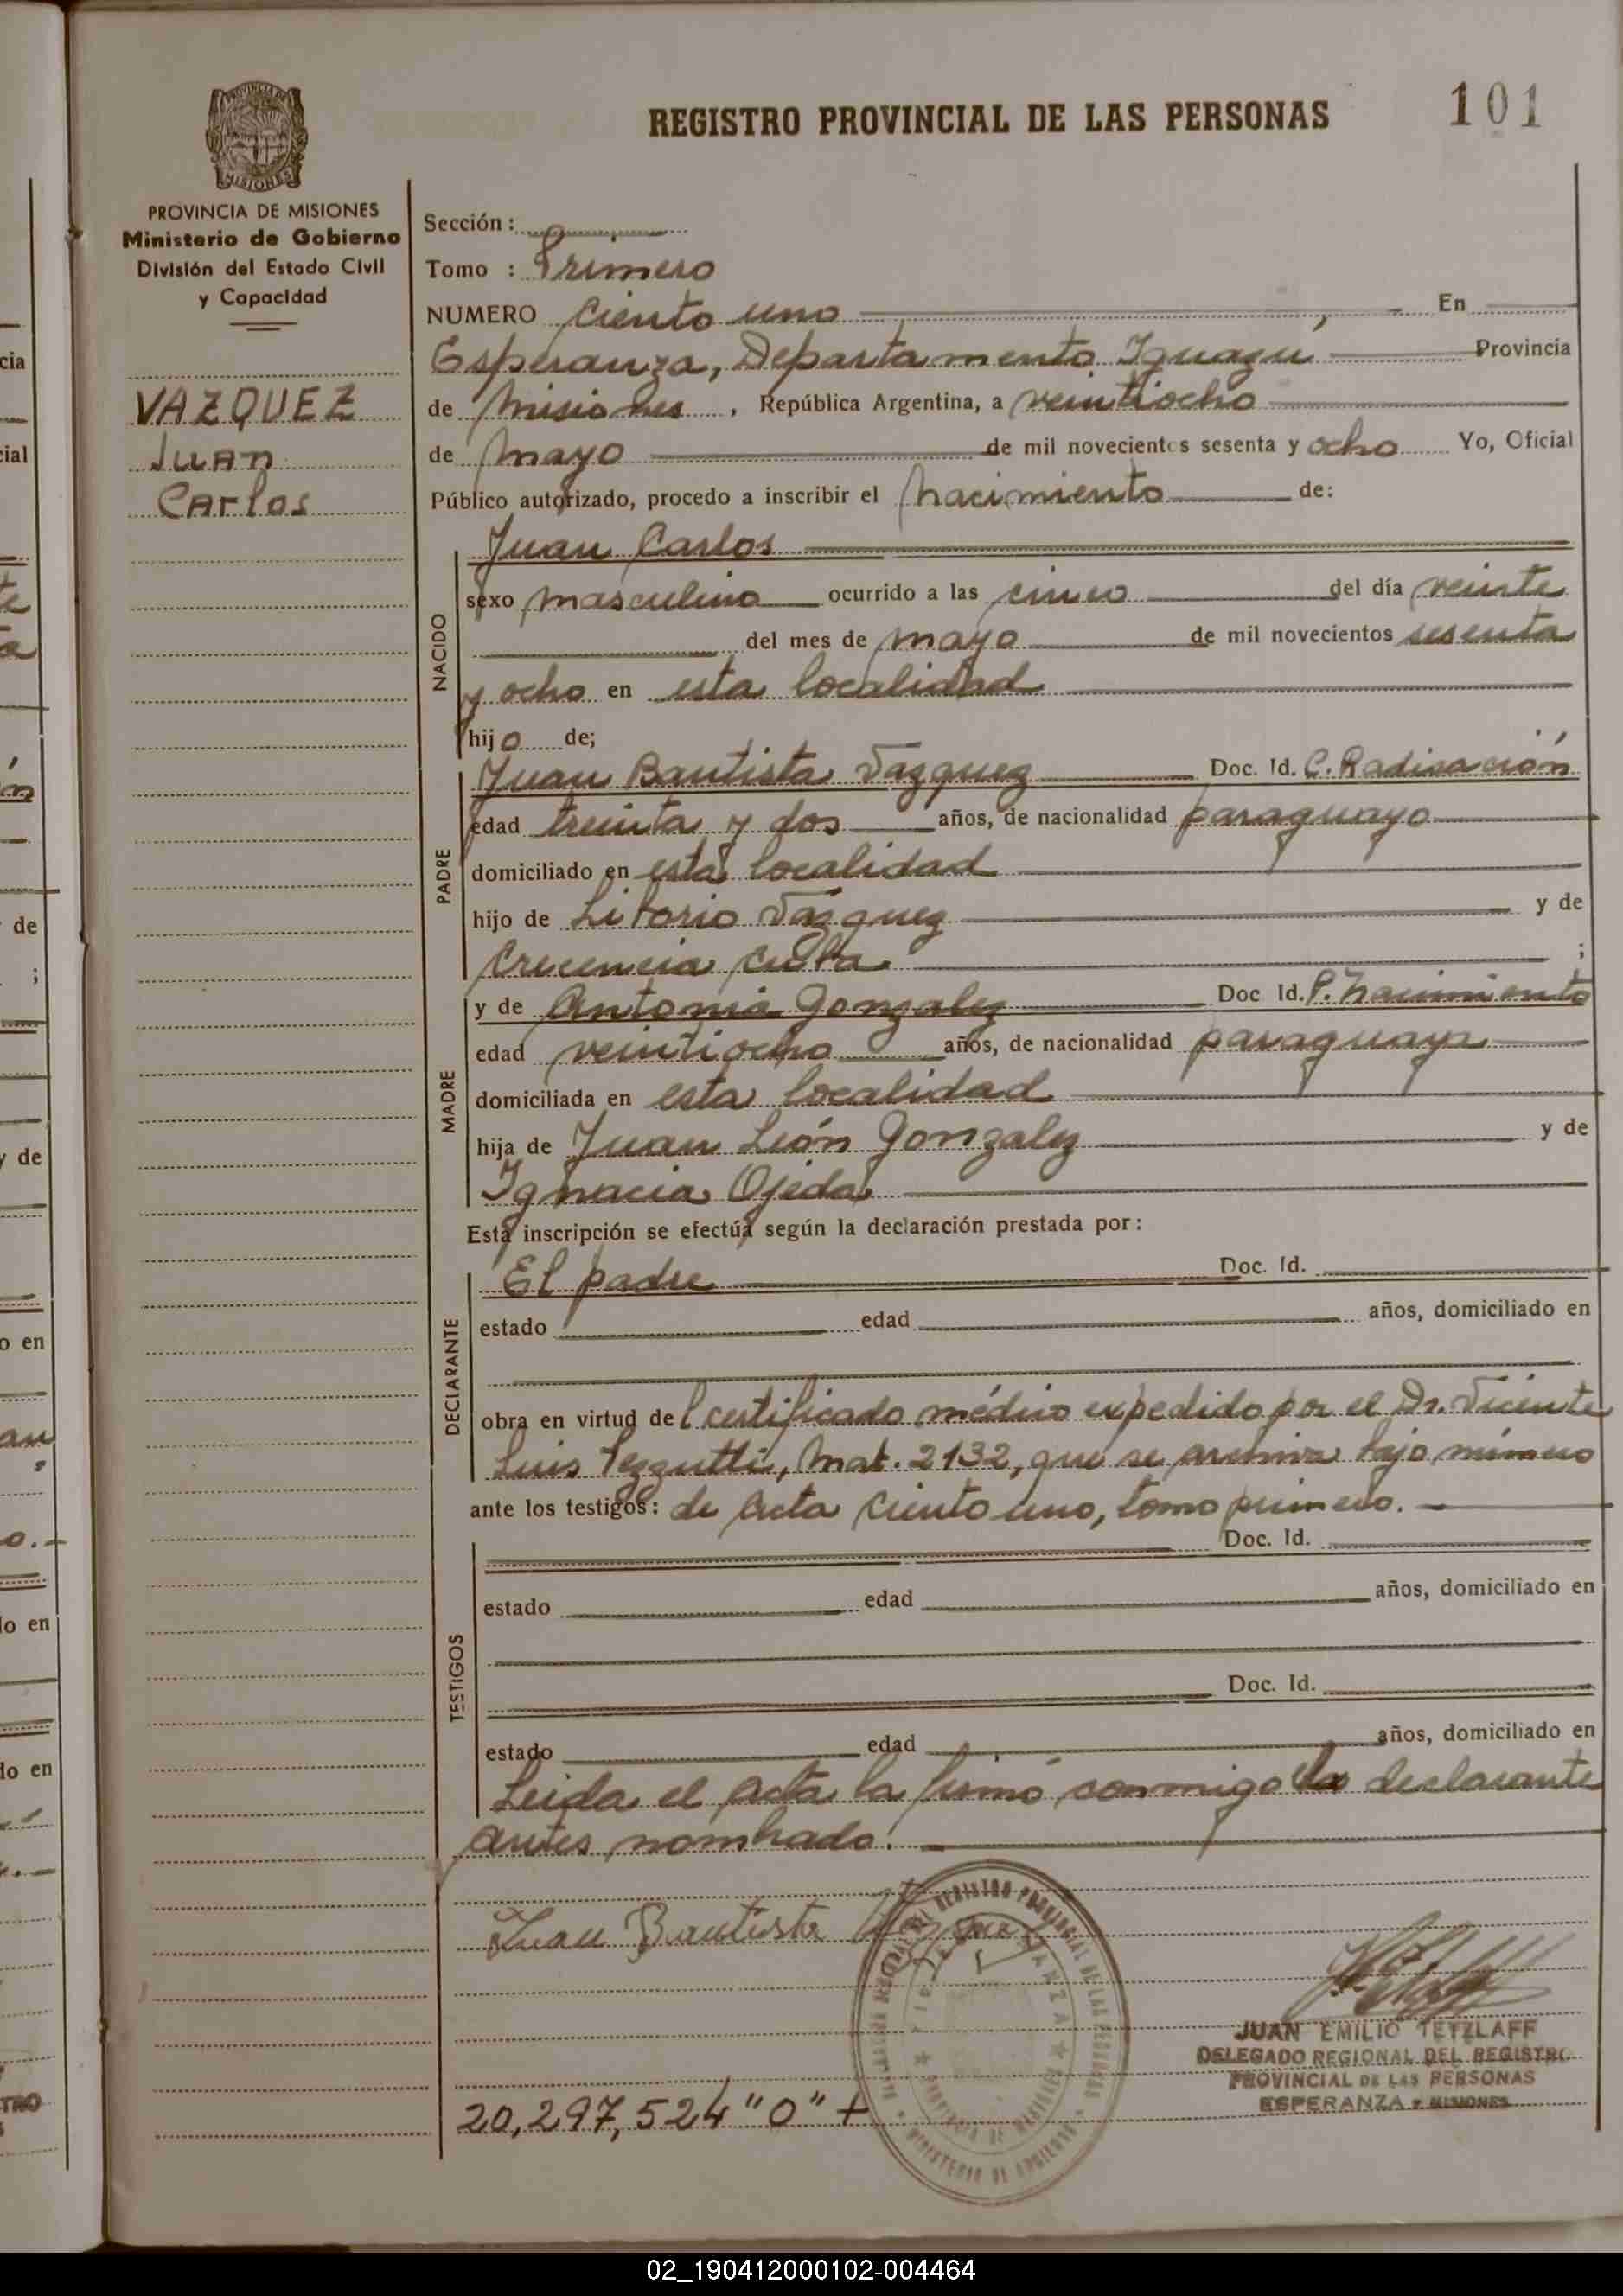 REGISTRO PROVINCIAL DE LAS PERSONAS
101
PROVINCIA DE MISIONES
Ministerio de Gobierno
División del Estado Civil
y Capacidad
VAZQUEZ
Juan
Carlos
Sección :
Tomo : Primero
NUMERO Ciento uno En
Esperanza, Departamento Iguazú Provincia
de Misiones, República Argentina, a veintiocho
de mayo de mil novecientos sesenta y ocho Yo, Oficial
Público autorizado, procedo a inscribir el nacimiento de:
NACIDO
Juan Carlos
sexo masculino ocurrido a las cinco del día veinte
del mes de mayo de mil novecientos sesenta
y ocho en esta localidad
hijo de;
PADRE
Juan Bautista Vazquez Doc. Id. C. Radicación
edad treinta y dos años, de nacionalidad paraguayo
domiciliado en esta localidad
hijo de Vázquez y de
Crecencia ;
MADRE
y de Antonia Gonzalez Doc Id. P. Nacimiento
edad veintiocho años, de nacionalidad paraguaya
domiciliada en esta localidad
hija de Juan León Gonzalez y de
Ignacia Ojeda
Esta inscripción se efectúa según la declaración prestada por:
DECLARANTE
El padre Doc. Id.
estado edad años, domiciliado en
obra en virtud del certificado médico expedido por el Dr. Vicente
Luis Mat. 2132, que se archiva bajo número
ante los testigos: de acta ciento uno, tomo primero.
TESTIGOS
Doc. Id.
estado edad años, domiciliado en
Doc. Id.
estado edad años, domiciliado en
Leida el acta la firmó conmigo declarante
antes nombrado.
Juan Bautista
JUAN EMILIO TETZLAFF
DELEGADO REGIONAL DEL REGISTRO
PROVINCIAL DE LAS PERSONAS
ESPERANZA - MISIONES
20,297,524 "O" +
02_190412000102-004464